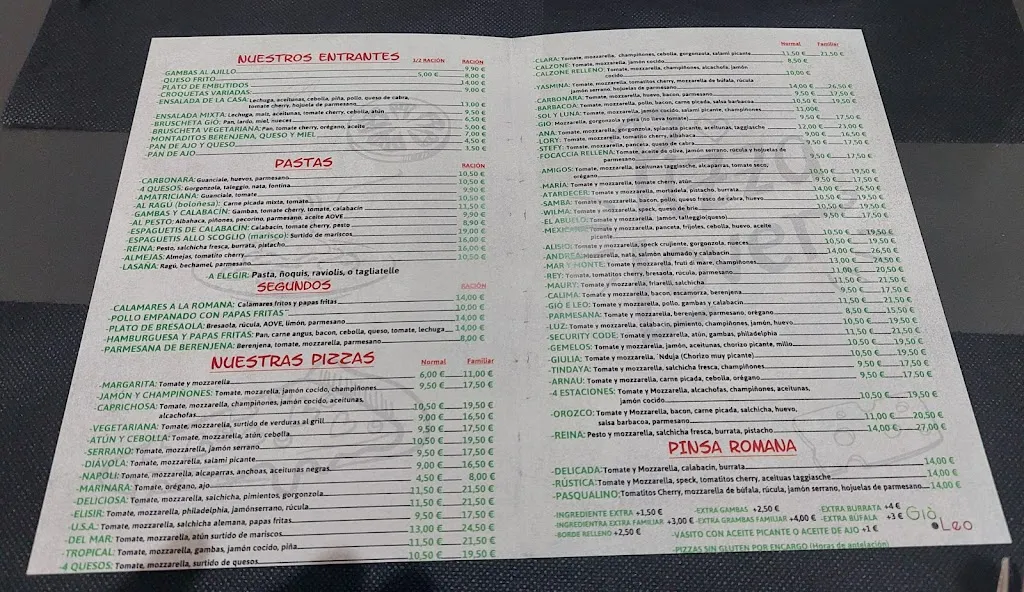 NUESTROS ENTRANTES 1/2 RACIÓN RACIÓN
-GAMBAS AL AJILLO 9,90 €
-QUESO FRITO 5,00 € 8,00 €
-PLATO DE EMBUTIDOS 14,00 €
-CROQUETAS VARIADAS 9,00 €
-ENSALADA DE LA CASA: Lechuga, aceitunas, cebolla, piña, pollo, queso de cabra,
tomate cherry, hojuela de parmesano 13,00 €
-ENSALADA MIXTA: Lechuga, maíz, aceitunas, tomate cherry, cebolla, atún 9,50 €
-BRUSCHETA GIÒ: Pan, lardo, miel, nueces 6,50 €
-BRUSCHETA VEGETARIANA: Pan, tomate cherry, orégano, aceite 5,00 €
-MONTADITOS BERENJENA, QUESO Y MIEL 7,00 €
-PAN DE AJO Y QUESO 4,50 €
-PAN DE AJO 3,50 €
PASTAS RACIÓN
-CARBONARA: Guanciale, huevos, parmesano 10,50 €
-4 QUESOS: Gorgonzola, taleggio, nata, fontina 10,50 €
-AMATRICIANA: Guanciale, tomate 9,90 €
-AL RAGÚ (boloñesa): Carne picada mixta, tomate 10,50 €
-GAMBAS Y CALABACÍN: Gambas, tomate cherry, tomate, calabacín 11,50 €
-AL PESTO: Albahaca, piñones, pecorino, parmesano, aceite AOVE 9,90 €
-ESPAGUETIS DE CALABACÍN: Calabacín, tomate cherry, pesto 8,90 €
-ESPAGUETIS ALLO SCOGLIO (marisco): Surtido de mariscos 19,00 €
-REINA: Pesto, salchicha fresca, burrata, pistacho 16,00 €
-ALMEJAS: Almejas, tomatito cherry 16,00 €
-LASAÑA: Ragú, bechamel, parmesano 10,50 €
A ELEGIR: Pasta, ñoquis, raviolis, o tagliatelle
SEGUNDOS RACIÓN
-CALAMARES A LA ROMANA: Calamares fritos y papas fritas 14,00 €
-POLLO EMPANADO CON PAPAS FRITAS 10,00 €
-PLATO DE BRESAOLA: Bresaola, rúcula, AOVE, limón, parmesano 14,00 €
-HAMBURGUESA Y PAPAS FRITAS: Pan, carne angus, bacon, cebolla, queso, tomate, lechuga 14,00 €
-PARMESANA DE BERENJENA: Berenjena, tomate, mozzarella, parmesano 8,00 €
NUESTRAS PIZZAS Normal Familiar
-MARGARITA: Tomate y mozzarella 6,00 € 11,00 €
-JAMÓN Y CHAMPIÑONES: Tomate, mozzarella, jamón cocido, champiñones 9,50 € 17,50 €
-CAPRICHOSA: Tomate, mozzarella, champiñones, jamón cocido, aceitunas,
alcachofas 10,50 € 19,50 €
-VEGETARIANA: Tomate, mozzarella, surtido de verduras al grill 9,00 € 16,50 €
-ATÚN Y CEBOLLA: Tomate, mozzarella, atún, cebolla 9,50 € 17,50 €
-SERRANO: Tomate, mozzarella, jamón serrano 10,50 € 19,50 €
-DIÁVOLA: Tomate, mozzarella, salami picante 9,50 € 17,50 €
-NAPOLI: Tomate, mozzarella, alcaparras, anchoas, aceitunas negras 9,00 € 16,50 €
-MARINARA: Tomate, orégano, ajo 4,50 € 8,00 €
-DELICIOSA: Tomate, mozzarella, salchicha, pimientos, gorgonzola 11,50 € 21,50 €
-ELISIR: Tomate, mozzarella, philadelphia, jamón serrano, rúcula 11,50 € 21,50 €
-U.S.A.: Tomate, mozzarella, salchicha alemana, papas fritas 9,50 € 17,50 €
-DEL MAR: Tomate, mozzarella, atún surtido de mariscos 13,00 € 24,50 €
-TROPICAL: Tomate, mozzarella, gambas, jamón cocido, piña 11,50 € 21,50 €
-4 QUESOS: Tomate, mozzarella, surtido de quesos 10,50 € 19,50 €
Normal Familiar
-CLARA: Tomate, mozzarella, champiñones, cebolla, gorgonzola, salami picante 11,50 € 21,50 €
-CALZONE: Tomate, mozzarella, jamón cocido 8,50 €
-CALZONE RELLENO: Tomate, mozzarella, champiñones, alcachofa, jamón
cocido 10,00 €
-YASMINA: Tomate, mozzarella, tomatitos cherry, mozzarella de búfala, rúcula
jamón serrano, hojuelas de parmesano 14,00 € 26,50 €
-CARBONARA: Tomate, mozzarella, huevo, bacon, parmesano 9,50 € 17,50 €
-BARBACOA: Tomate, mozzarella, pollo, bacon, carne picada, salsa barbacoa 10,50 € 19,50 €
-SOL Y LUNA: Tomate, mozzarella, jamón cocido, salami picante, champiñones 11,00€
-GIÒ: Mozzarella, gorgonzola y pera (no lleva tomate) 9,50 € 17,50 €
-ANA: Tomate, mozzarella, gorgonzola, splanata picante, aceitunas, taggiasche 12,00 € 23,00 €
-LORY: Tomate, mozzarella, tomatito cherry, albahaca 9,00 € 16,50 €
-STEFY: Tomate, mozzarella, panceta, queso de cabra 9,50 € 17,50 €
-FOCACCIA RELLENA: Tomate, aceite de oliva, jamón serrano, rúcula y hojuelas de
parmesano 9,50 € 17,50 €
-AMIGOS: Tomate, mozzarella, aceitunas taggiasche, alcaparras, tomate seco,
orégano 10,50 € 19,50 €
-MARÍA: Tomate, mozzarella, tomate cherry, atún 9,50 € 17,50 €
-ATARDECER: Tomate, mozzarella, mortadela, pistacho, burrata 14,00 € 26,50 €
-SAMBA: Tomate, mozzarella, bacon, pollo, queso fresco de cabra, huevo 10,50 € 19,50 €
-WILMA: Tomate, mozzarella, speck, queso de brie 10,50 € 19,50 €
-EL ABUELO: Tomate y mozzarella, jamón, talleggio(queso) 9,50 € 17,50 €
-MEXICANA: Tomate y mozzarella, panceta, frijoles, cebolla, huevo, aceite
picante 10,50 € 19,50 €
-ALISIOS: Tomate y mozzarella, speck crujiente, gorgonzola, nueces 10,50 € 19,50 €
-ANDREA: Mozzarella, nata, salmón ahumado y calabacín 14,00 € 26,50 €
-MAR Y MONTE: Tomate y mozzarella, fruti di mare, champiñones 13,00 € 24,50 €
-REY: Tomate, tomatitos cherry, bresaola, rúcula, parmesano 11,00 € 20,50 €
-MAURY: Tomate y mozzarella, friarelli, salchicha 11,50 € 21,50 €
-CALIMA: Tomate y mozzarella, bacon, escamorza, berenjena 9,50 € 17,50 €
-GIÒ E LEO: Tomate y mozzarella, pollo, gambas y calabacín 11,50 € 21,50 €
-PARMESANA: Tomate y mozzarella, berenjena, parmesano, orégano 8,50 € 15,50 €
-LUZ: Tomate y mozzarella, calabacín, pimiento, champiñones, jamón, huevo 10,50 € 19,50 €
-SECURITY CODE: Tomate y mozzarella, atún, gambas, philadelphia 11,50 € 21,50 €
-GEMELOS: Tomate y mozzarella, jamón, aceitunas, chorizo picante, millo 10,50 € 19,50 €
-GIULIA: Tomate y mozzarella, Nduja (Chorizo muy picante) 10,50 € 19,50 €
-TINDAYA: Tomate y mozzarella, salchicha fresca, champiñones 9,50 € 17,50 €
-ARNAU: Tomate y mozzarella, carne picada, cebolla, orégano 9,50 € 17,50 €
-4 ESTACIONES: Tomate y Mozzarella, alcachofas, champiñones, aceitunas,
jamón cocido 10,50 € 19,50 €
-OROZCO: Tomate y Mozzarella, bacon, carne picada, salchicha, huevo,
salsa barbacoa, parmesano 11,00 € 20,50 €
-REINA: Pesto y mozzarella, salchicha fresca, burrata, pistacho 14,00 € 27,00 €
PINSA ROMANA
-DELICADA: Tomate y Mozzarella, calabacín, burrata 14,00 €
-RÚSTICA: Tomate y Mozzarella, speck, tomatitos cherry, aceitunas taggiasche 14,00 €
-PASQUALINO: Tomatitos Cherry, mozzarella de búfala, rúcula, jamón serrano, hojuelas de parmesano 14,00 €
-INGREDIENTE EXTRA +1,50 € -EXTRA GAMBAS +2,50 € -EXTRA BURRATA +4 €
-INGREDIENTRA EXTRA FAMILIAR +3,00 € -EXTRA GRAMBAS FAMILIAR +4,00 € -EXTRA BUFALA +3 €
-BORDE RELLENO +2,50 € -VASITO CON ACEITE PICANTE O ACEITE DE AJO +1 €
-PIZZAS SIN GLUTEN POR ENCARGO (Horas de antelación)
Giò
Leo